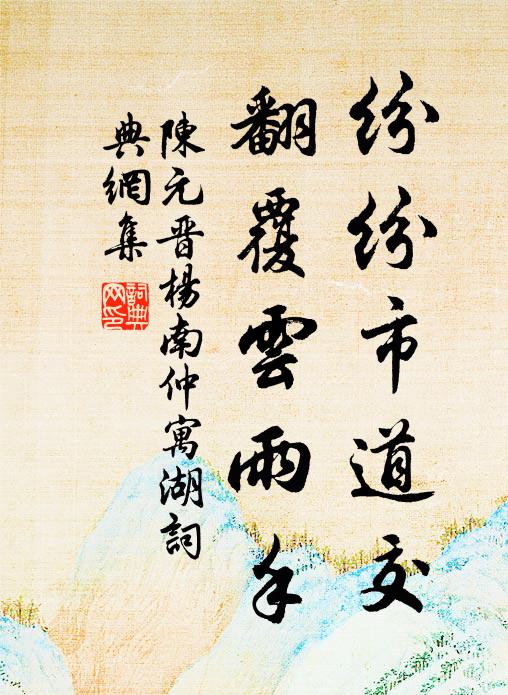 紛紛市道交
翻覆雲雨手
陳元晋楊南仲寓湖詞
典網集
詞典網印